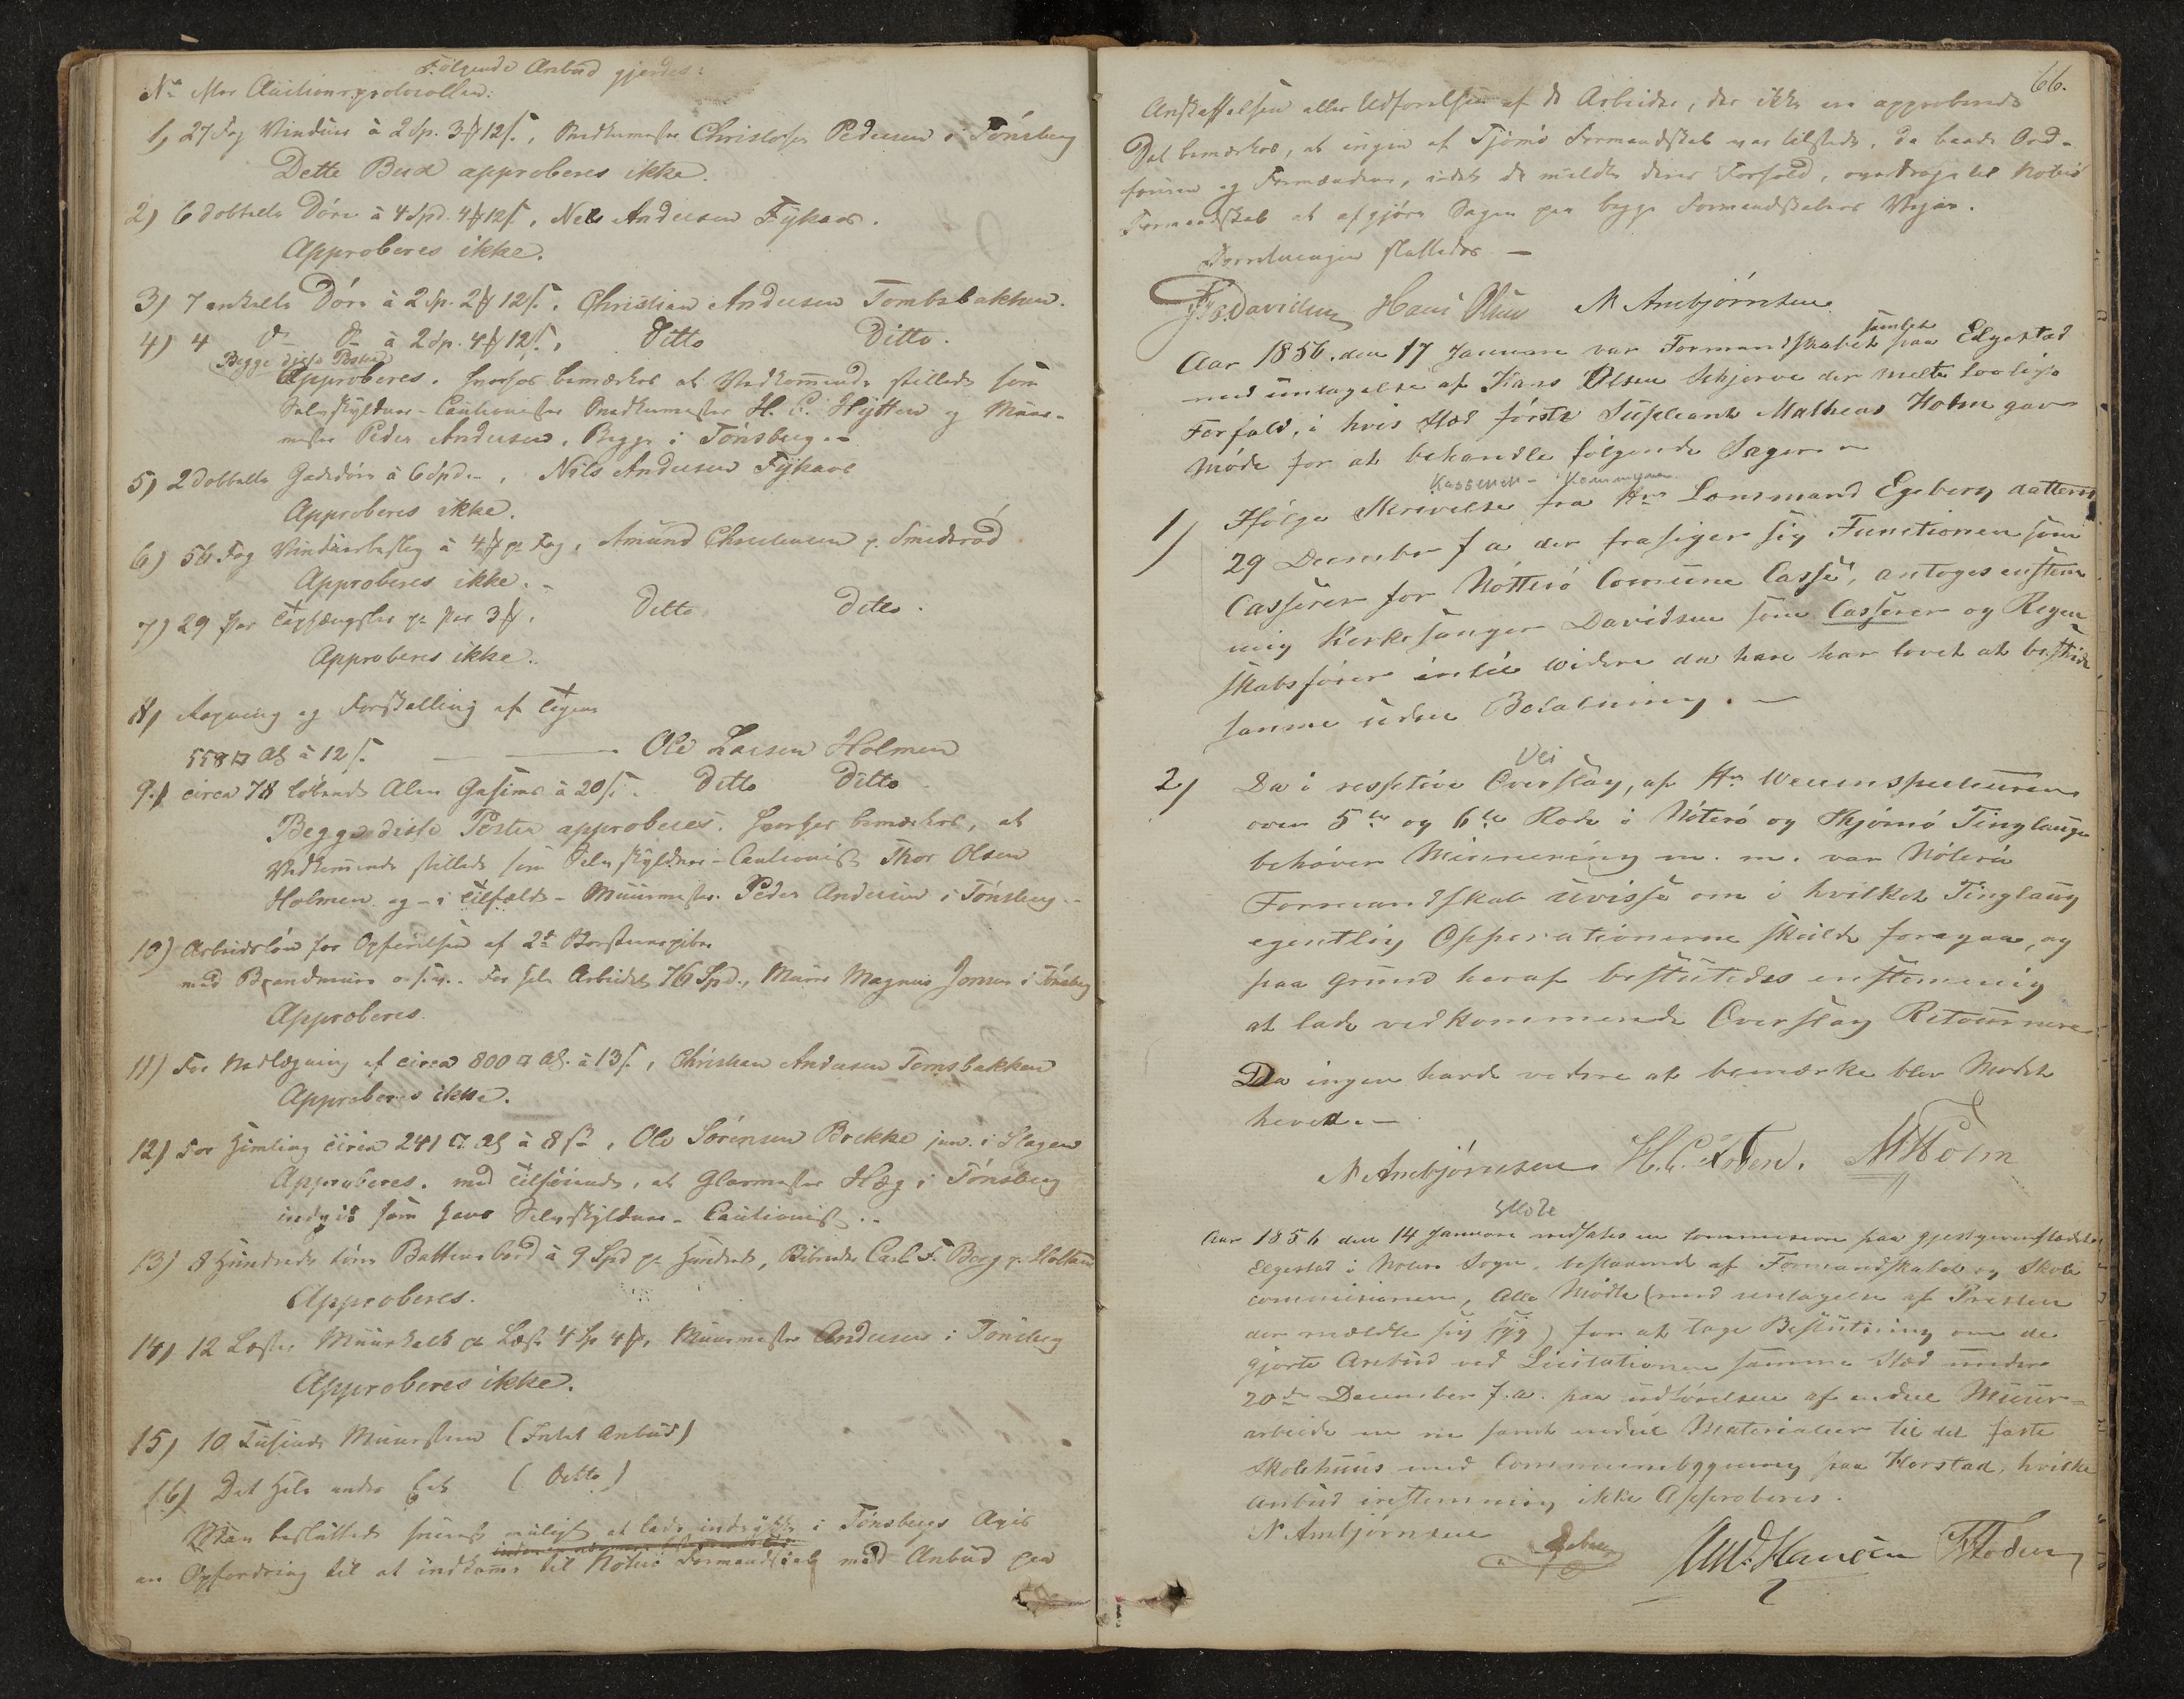 Følgende Anbud gjordes:
No efter Auctionsprotocollen:
1, 27 Fag Vinduer à 2 Sp. 3 ₰ 12 s., Snedkermester Christofer Pedersen i Tønsberg
Dette Bud approberes ikke.
2) 6 dobbelte Døre à 4 Spd. 4 ₰ 12 s., Nels Andersen Tykaas.
Approberes ikke.
3) 7 enkelte Døre à 2 Sp. 2 ₰ 12 s. Christian Andersen Tombsbakken.
4) 4 do do à 2 Sp. 4 ₰ 12 s., Ditto Ditto.
Begge disse Poster
Approberes. Herhos bemærkes at Vedkommende stillede som
Selvskyldner-Cautionister Snedkermester H. C. Hytten og Muur-
mester Peder Andersen, Begge i Tønsberg.-
5) 2 dobbelte Gadedøre à 6 Spd.-, Nils Andersen Tykaas
Approberes ikke.
6) 56 Fag Vinduesbeslag à 4 ₰ pr Fag, Amund Christensen p. Smiderød
Approberes ikke.-
7) 29 Par pr Par 3 ₰, Ditto Ditto.
Approberes ikke..
8) Rapning og Forskalling af
558 □ Al à 12 s. — Ole Larsen Holmen
9) circa 78 løbende Alen Gesims à 20 s. Ditto Ditto
Begge disse Poster approberes. Herhos bemærkes, at
Vedkommende stillede som Selvskyldner-Cautionist Thor Olsen
Holmen og - i Tilfælde - Muurmester Peder Andersen i Tønsberg.-
10) Arbeidsløn for Opførelsen af 2de Skorsteenspiber
med Brandmure o.s.v. For hele Arbeidet 76 Spd., Murer Magnus Jonsen i Tønsberg
Approberes.
11) For Nedlægning af circa 800 □ Al. à 13 s., Christian Andersen Tomsbakken
Approberes ikke.
12) For Himling circa 241 □ Al à 8 s, Ole Sørensen Brekke jun. i Slagen
Approberes. med Tilføiende, at Glarmester Høeg i Tønsberg
indgik som hans Selvskyldner-Cautionist.-
13) 8 Hundrede tøm Battensbord à 9 Spd pr Hundrede, Carl F. Berg p. Holtan
Approberes.
14) 12 Læster Muurkalk pr Læst 4 Sp 4 ₰, Muurmester Andersen i Tønsberg
Approberes ikke.
15) 10 Tusinde Muursteen (Intet Anbud)
16) Det Hele under Eet (Ditto)
Man besluttede snarest muligt at lade indrykke i Tønsbergs Avis
en Opfordring til at indkomme til Nøterø Formandskab med Anbud paa
66.
Anskaffelsen eller Udførelsen af de Arbeider, der ikke ere approberede
Det bemærkes, at ingen af Tjømø Formandskab var tilstede, da baade Ord-
føreren og Formændene, idet de meldte deres Forfald, overdroge til Nøterø
Formandskab at afgjøre Sagen paa begge Formandskabers Vegne.
Forretningen sluttedes.—
Fr. Davidsen Hans Olsen N Ambjørnsen
Aar 1856 den 17 Januar var Formandskabet samlet paa Elgestad
med untagelse af Hans Olsen Schjerve der meldte lovligt
Forfald, i hvis Sted første Supleant Matheas Holm gav
Møde for at behandle følgende Sager
Kasserer - Kommunen
1) Ifølge Skrivelse fra Hr Lensmand Egeberg datteret
29 December f. a. der frasiger sig Functionen som
Casserer for Nøtterø Comune Casse, antoges enstem-
mig Kirkesanger Davidsen som Casserer og Regn-
skabsfører intil videre da han har lovet at bestride
samme uden Betalning.—
Vei
2) Da i respective Overslag, af Hr Veiinspecteuren
over 5te og 6te Rode i Nøterø og Tjømø Tinglaug
behøver Minnering m. m. var Nøterø
Formandskab uvisse om i hvilket Tinglaug
egentlig Opperationerne skulde foregaa, og
paa grund heraf besluttedes enstemmig
at lade vedkommende Overslag Retournere
Da ingen havde videre at bemærke blev Mødet
hevet.—
N Ambjørnsen H. C. Foden. M Holm
Skole
Aar 1856 den 14 Januar nedsates en Commision paa gjestgiverstædet
Elgestad i Nøterø Sogn, bestaaende af Formandskabet og Skole
commisionen, Alle Mødte (med untagelse af Presten
der meldte sig syg) for at tage Beslutning om de
gjorte Anbud ved Licitationen samme Sted under
20de December f. a. paa udførelsen af endeel Muur-
arbeide m m samt endeel Materialier til det faste
Skolehuus med Communebygning paa Korstad, hvilke
anbud enstemmig ikke Approberes.
N Ambjørnsen Hansen Foden